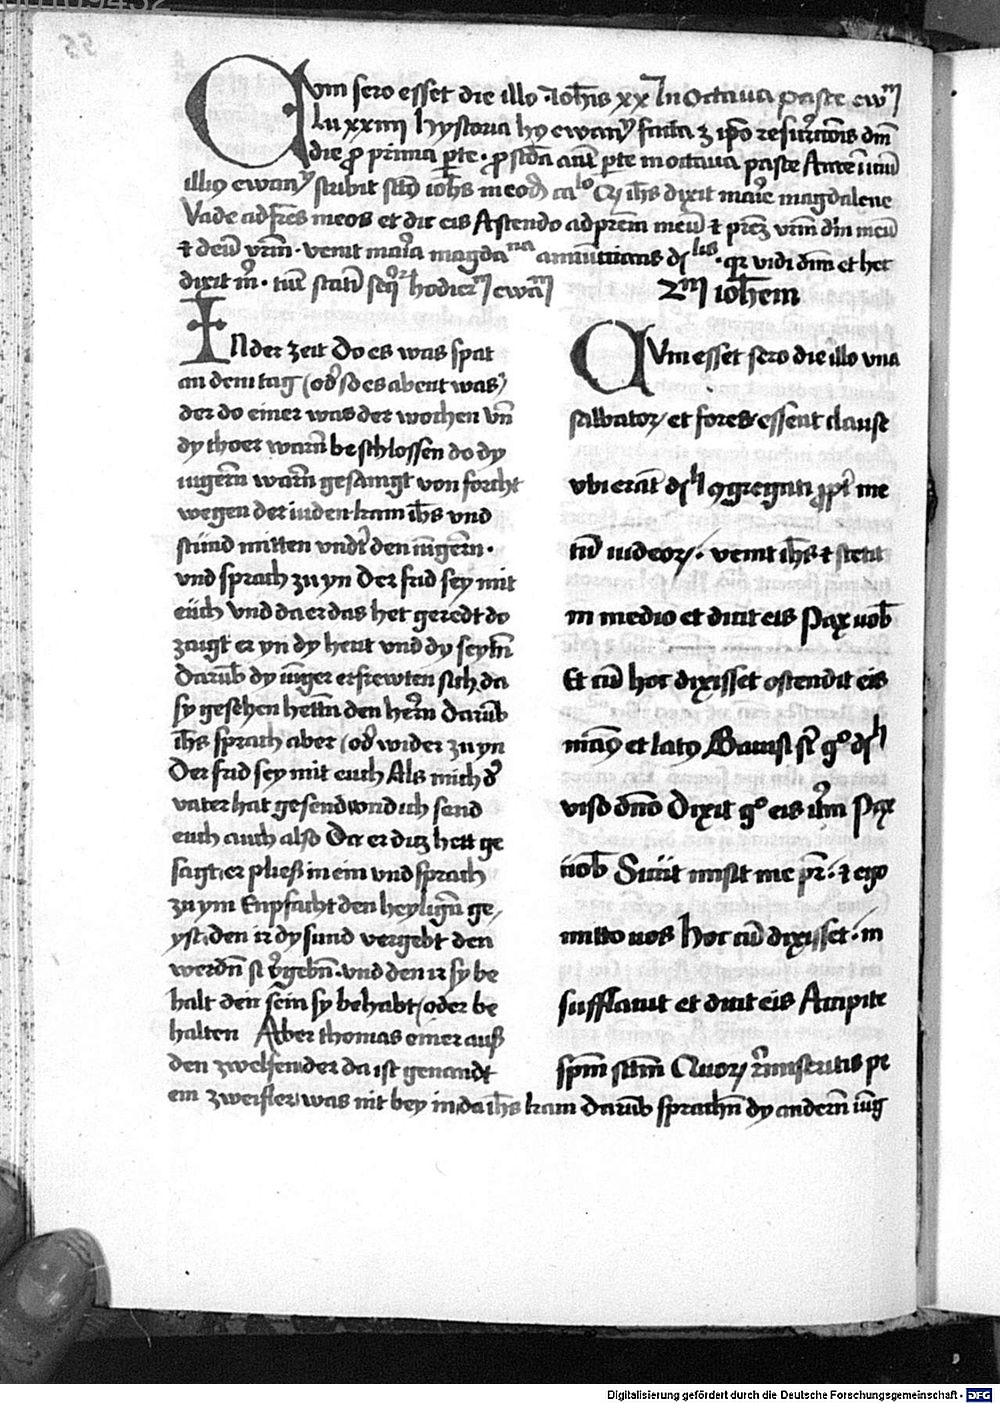 Cum sero esset die illo Joh̄is xx In octaua pasce ewm̄
Lu xxiiii hystoria hꝰ ewanꝰ facta ʒ ip̄o resurr̄ctōnis dm̄
die ꝓ prima ꝑte · ꝓ scd̄a aūt ꝑte in octaua pasce Ante īiciū
illiꝰ ewanꝰ scribit scūs ioh̄s in eodē ca lo Qꝫ ih̄s dixit marie magdalene
Vade ad fr̄es meos et dic eis Ascendo ad pr̄em meū ⁊ pr̄eʒ vr̄m dm̄ meū
⁊ deū vr̄m · venit maria magda na annūtians disc lis · qꝛ vidi dn̄m et hec
dixit m̄ · tūc statī seq̄r hodierm̄ ewām 2m iohēm
IN der zeit Do es was spat
an dem tag (od̄ so es abent was)
der do einer was der wochen vn̄
dy thoer warn̄ beschlossen do dy
iugern̄ warn̄ gesamgt von forcht
wegen der iuden kam ih̄s vnd
stūnd mitten vndʼ den iūngern̄ ·
vnd sprach zu yn Der frid sey mit
eūch vnd da er das het geredt do
zaigt er yn dy hent vnd dy seytn̄
Darūb dy iūnger erfrewten sich da
sy gesehen hettn̄ den hern̄ Darūb
ih̄s sprach aber (od̄ wider zu yn
Der frid sey mit euch Als mich dʼ
vater hat gesend vnd ich send
euch auch also Da er diz hett ge
sagt er pließ in ein vnd sprach
zu ym Enpfacht den heylign̄ ge/
yst den ir dy sund vergebt den
werdn̄ si vʼgebn̄ · vnd den ir sy be
halt den sein sy behabt (oder be
halten Aber thomas einer auß
den zwelfen der da ist genandt
ein zweifler was nit bey in da ih̄s kam Darūb sprachn̄ dy andern̄ iūg
CVm esset sero die illo vna
sabbatoꝝ et fores essent clause
vbi erāt disc li ꝯgregati ꝓpt̄ me
tū iudeoꝝ · venit ih̄s ⁊ stetit
in medio et dicit eis Pax uob̄
Et cū hoc dixisset ostendit eis
manꝰ et latꝰ Gauisi st̄ gº disc li
viso dn̄o Dixit gº eis itm̄ Pax
uob̄ Sicut misit me pr̄ · ⁊ ego
mitto uos hoc cū dixisset · in
sufflauit et dicit eis Accipite
sp̄m scm̄ Quoꝝ r̄miseritis pe
Digitalisierung gefördert durch die Deutsche Forschungsgemeinschaft - DFG